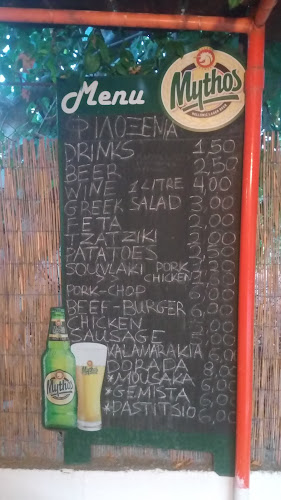 Mythos
HELLENIC LAGER BEER
Menu
ΦΙΛΟΞΕΝΙΑ
DRINKS 1,50
BEER 2,50
WINE 1 LITRE 4,00
GREEK SALAD 3,00
FETA 2,00
TZATZIKI 2,00
PATATOES
SOUVLAKI PORK
CHICKEN
PORK-CHOP 6,00
BEEF-BURGER 6,00
CHICKEN
SAUSAGE
KALAMARAKIA 6,00
DORADA 8,00
*MOUSAKA 6,00
*GEMISTA 6,00
*PASTITSIO 6,00
Mythos
Mythos